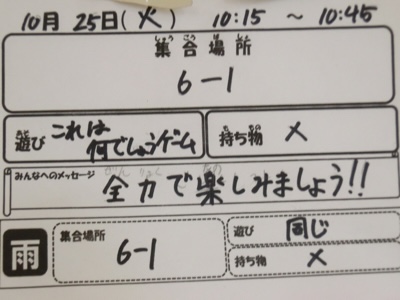 10月 25日(火) 10:15 ～ 10:45
集合場所
しゅうごうばしょ
6-1
遊び これは何でしょうゲーム
持ち物 ×
みんなへのメッセージ
全力で楽しみましょう!!
雨
集合場所 6-1
遊び 同じ
持ち物 ×